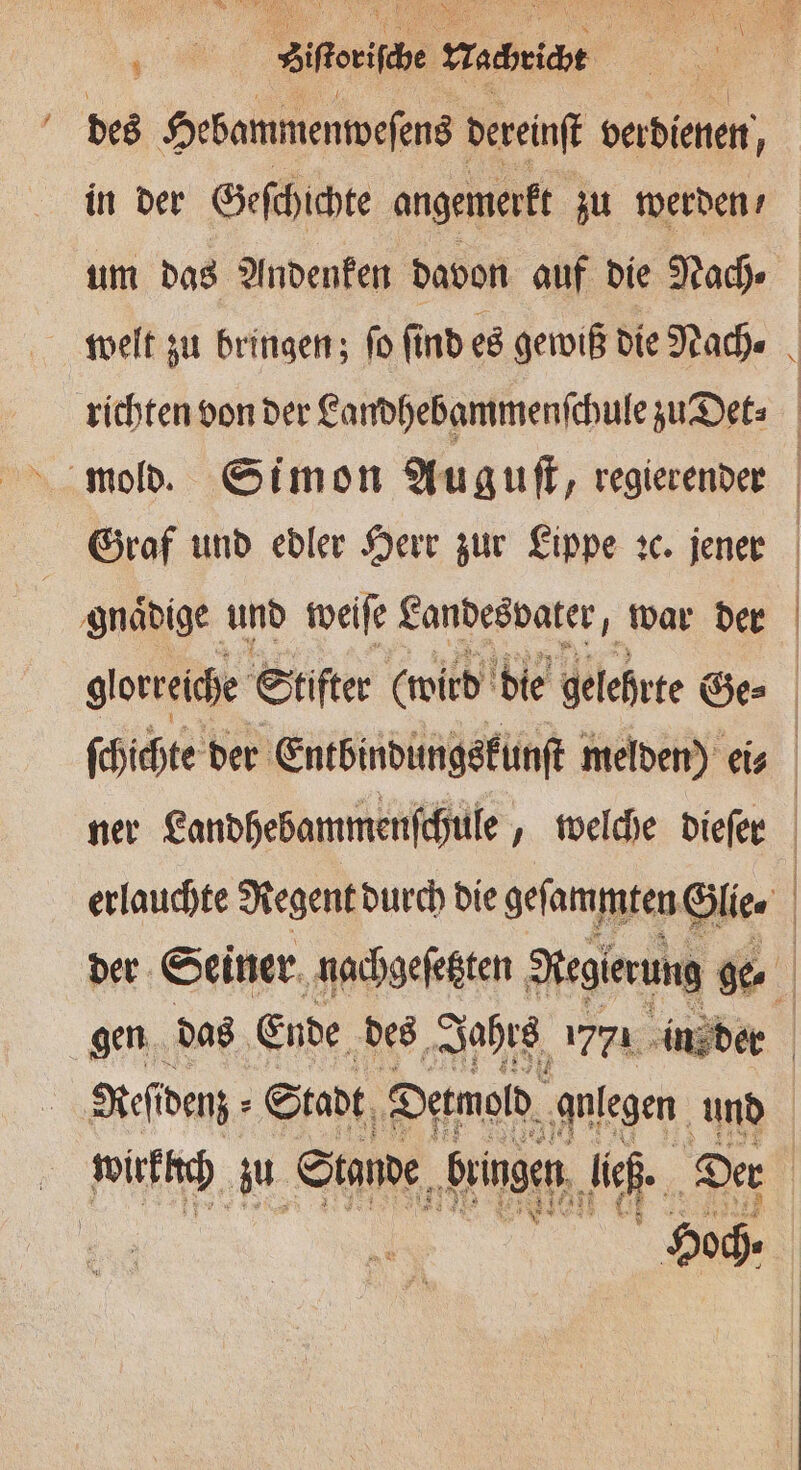 Hiſtoriſche Nachricht
des Hebammenweſens dereinſt verdienen,
in der Geſchichte angemerkt zu werden,
um das Andenken davon auf die Nach-
welt zu bringen; ſo ſind es gewiß die Nach-
richten von der Landhebammenſchule zu Det-
mold. Simon Auguſt, regierender
Graf und edler Herr zur Lippe ꝛc. jener
gnaͤdige und weiſe Landesvater, war der
glorreiche Stifter (wird die gelehrte Ge-
ſchichte der Entbindungskunſt melden) ei-
ner Landhebammenſchule, welche dieſer
erlauchte Regent durch die geſammten Glie-
der Seiner nachgeſetzten Regierung ge-
gen das Ende des Jahrs 1771 in der
Reſidenz-Stadt Detmold anlegen und
wirklich zu Stande bringen ließ. Der
Hoch-